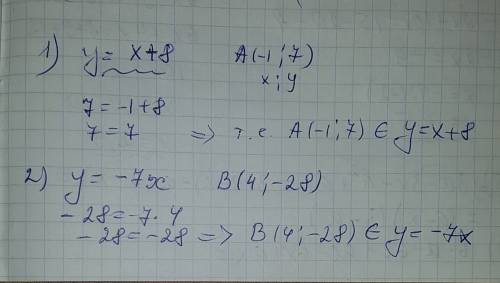 1) y = x+8 A(-1; 7)
x; y
7 = -1+8
7 = 7 => т.е. A(-1; 7) ∈ y=x+8
2) y = -7x B(4; -28)
-28 = -7·4
-28 = -28 => B(4; -28) ∈ y = -7x